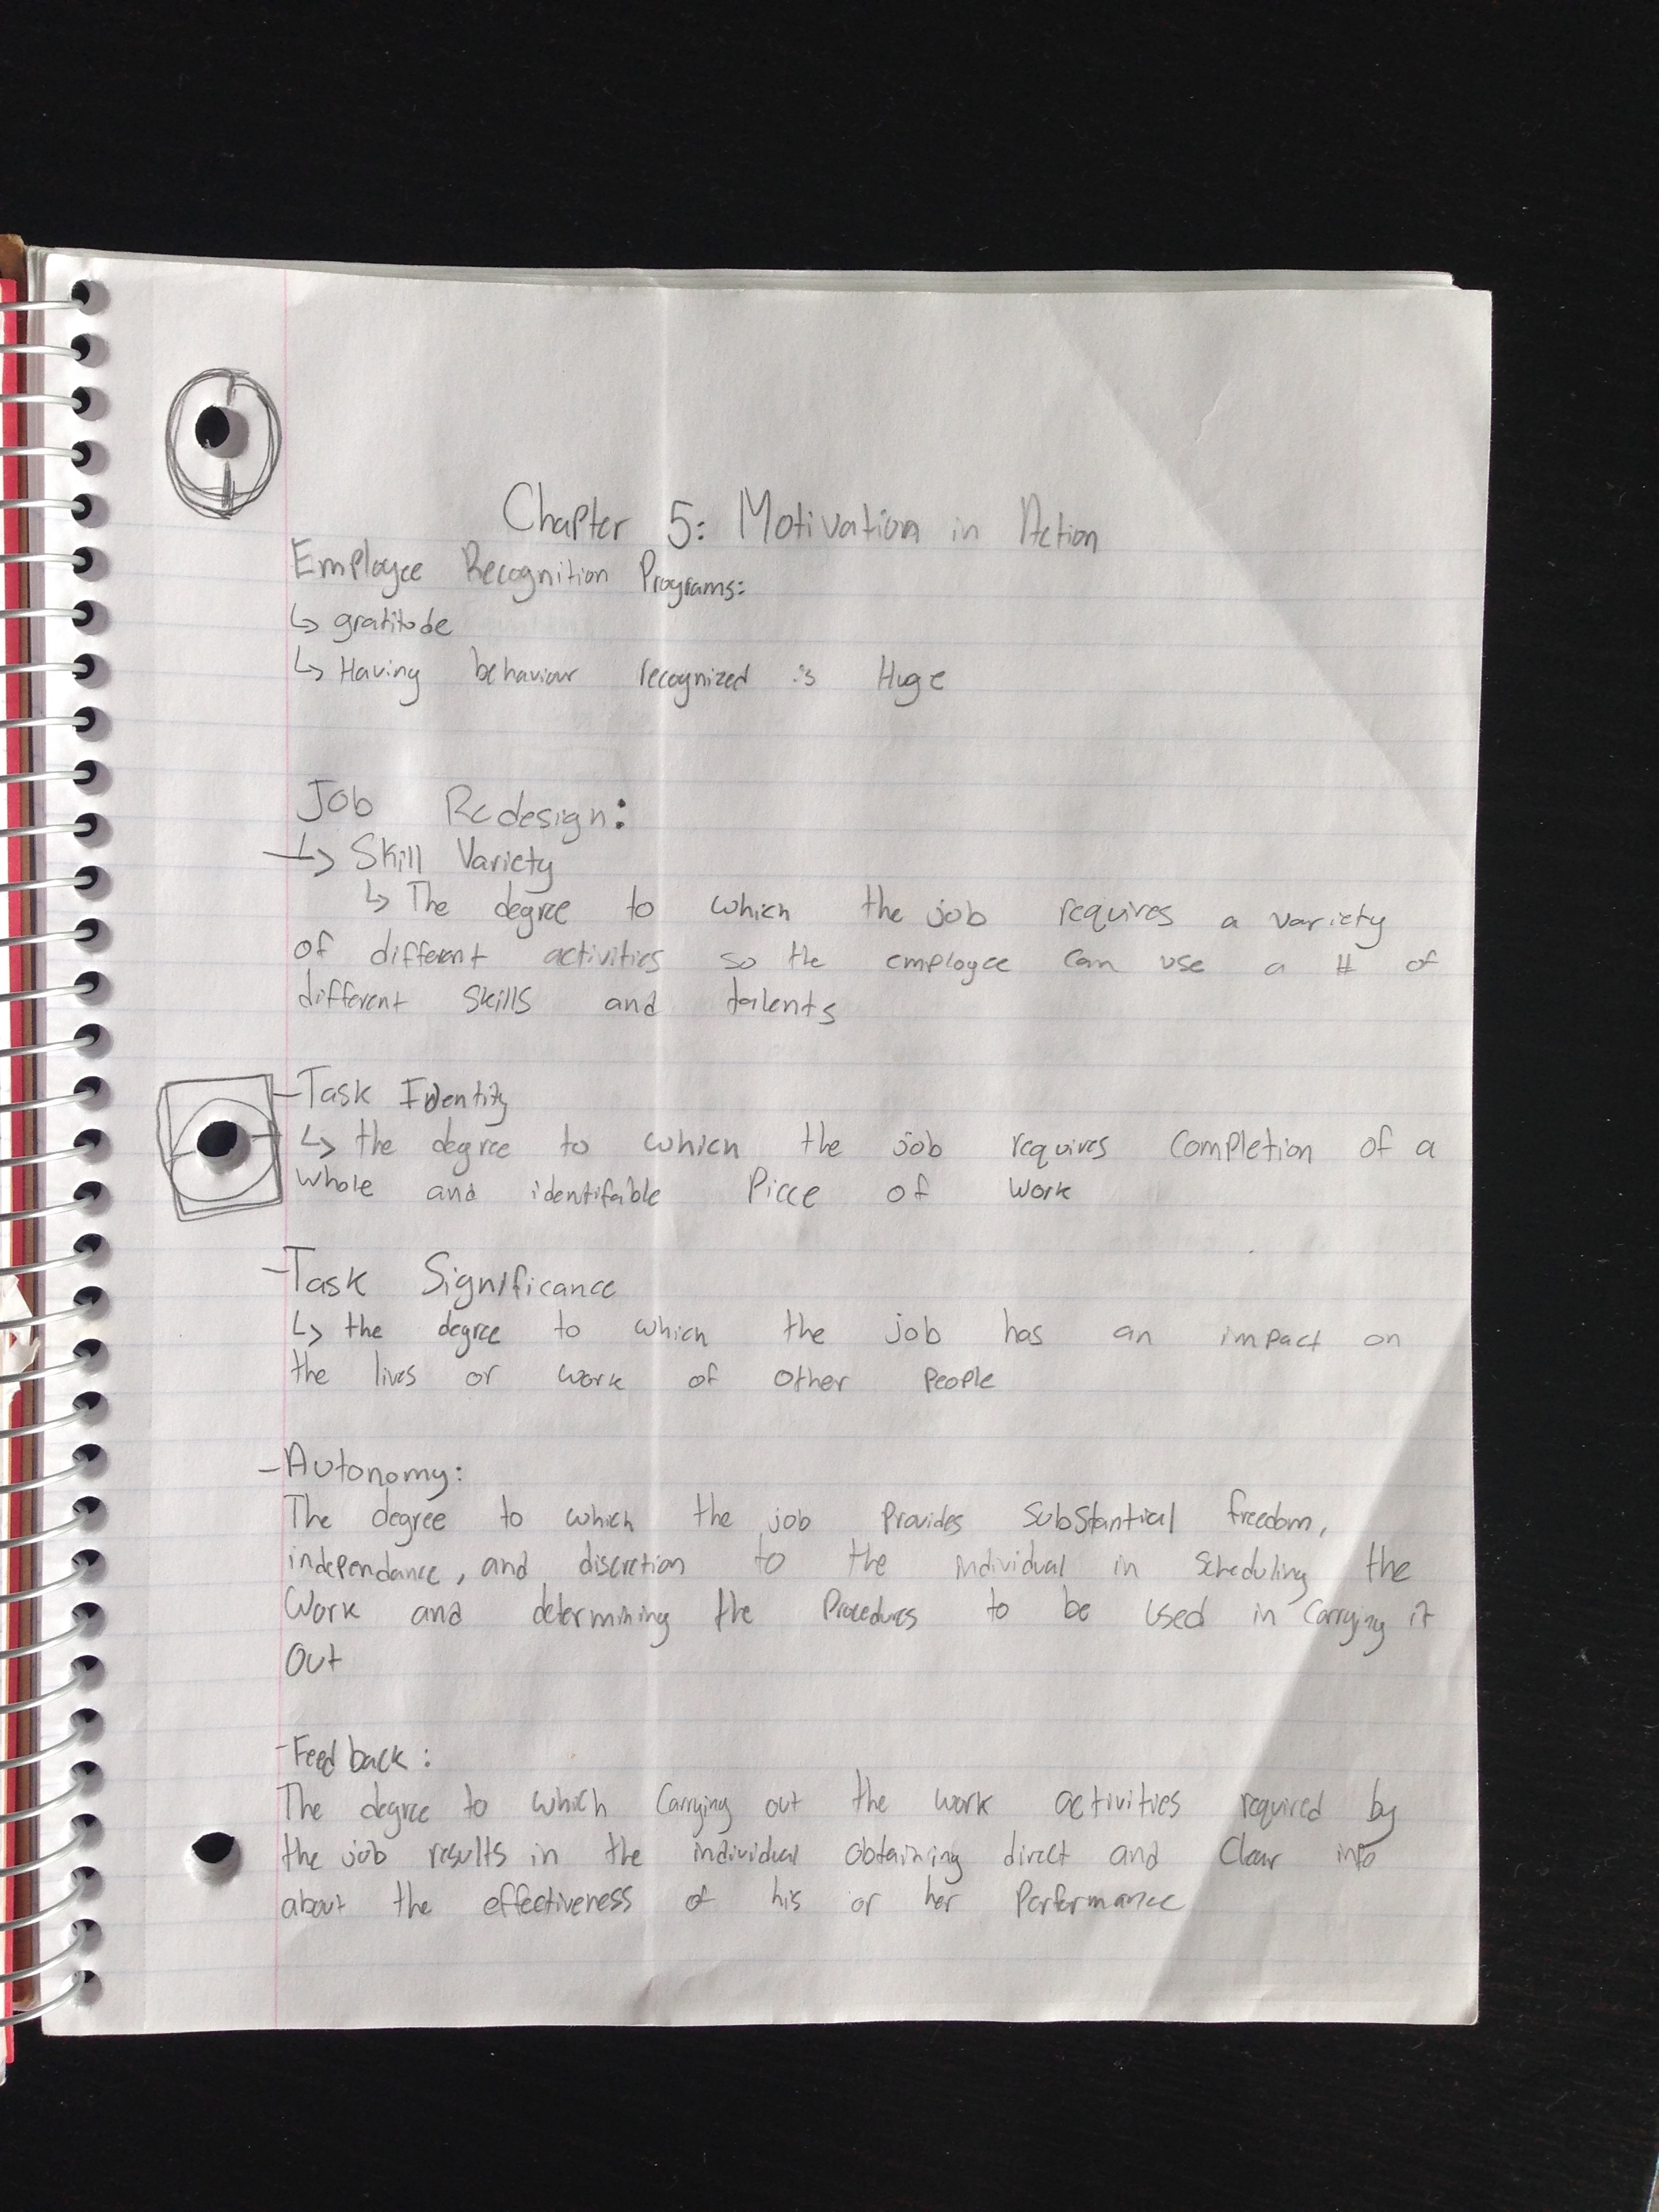 Chapter 5: Motivation in Action
Employee Recognition Programs:
↳ gratitude
↳ Having behaviour recognized is Huge
Job Redesign:
↳ Skill Variety
↳ The degree to which the job requires a variety
of different activities so the employee can use a # of
different skills and talents
- Task Identity
↳ the degree to which the job requires completion of a
whole and identifable Piece of work
- Task Significance
↳ the degree to which the job has an impact on
the lives or work of other people
- Autonomy:
The degree to which the job provides substantial freedom,
independance, and discretion to the individual in scheduling the
work and determining the Procedures to be used in carrying it
out
- Feedback:
The degree to which carrying out the work activities required by
the job results in the individual obtaining direct and clear info
about the effectiveness of his or her Performance